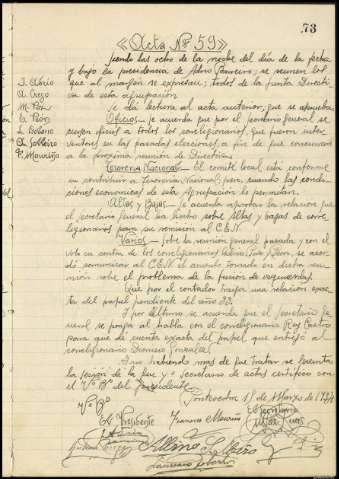 73
«Acta Nº 59»
Siendo las ocho de la noche del día de la fecha
y bajo la presidencia de Albino se reunen los
que al margen se expresan; todos de la Junta Directi-
va de esta agrupación.
Se dá lectura al acta anterior, que se aprueba.
Oficios.- Se acuerda que por el secretario general se
cursen oficios a todos los correligionarios, que fueron inter-
ventores en las pasadas elecciones a fin de que concurran
a la próxima reunión de Directiva.
Tesorería Nacional.- El comité local está conforme
en contribuir a Tesorería Nacional, pero, cuando las condi-
ciones económicas de esta Agrupación lo permitan.
Altas y Bajas.- Se acuerda aprobar la relación que
el secretario general ha hecho sobre altas y bajas de corre-
ligionarios para su remisión al C.E.N.
Varios.- Sobre la reunión general pasada y con el
voto en contra de los correligionarios y se acor-
dó comunicar al C.E.N. el acuerdo tomado en dicha reu-
nión sobre el problema de la fusión de izquierdas.
Que por el contador traiga una relación exac-
ta del papel pendiente del año 33.
Y por último se acuerda que el secretario ge-
neral se ponga al habla con el correligionario Rey
para que dé cuenta exacta del papel que entregó al
correligionario Gonzalez.
Y no habiendo mas de que tratar se levanta
la sesión de la que yo Secretario de actas certifico con
el Vº Bº del Presidente.
Pontevedra 1º de Marzo de 1934
Vº Bº
El Presidente
El Secretario